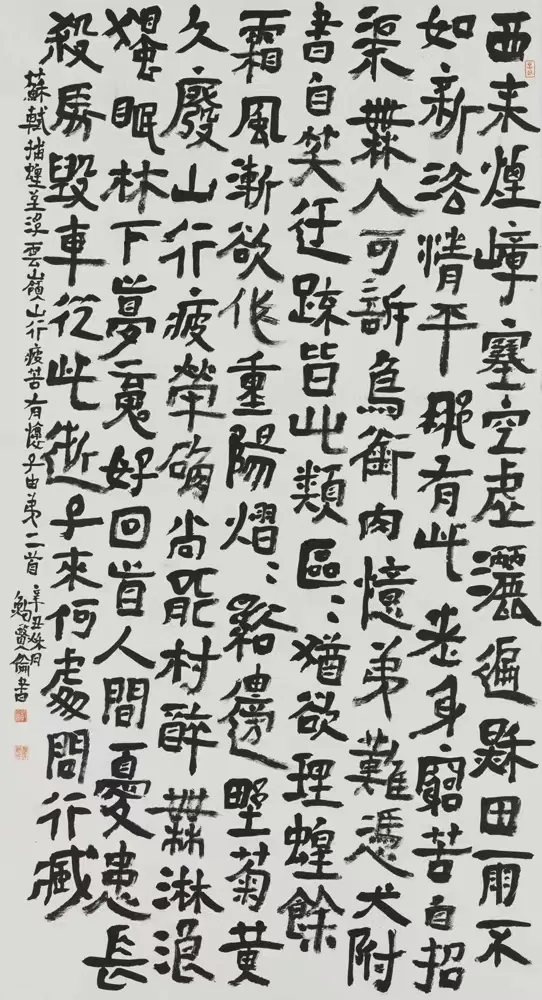 西来煙嶂塞空虛灑遍秋田雨不
如新法清平那有此老身窮苦自招
渠無人可訴烏銜肉憶弟難憑犬附
書自笑迂疏皆此類區〻猶欲理蝗餘
霜風漸欲作重陽熠〻谿邊野菊黄
久廢山行疲犖确尚能村醉舞淋浪
獨眠林下夢魂好回首人間憂患長
殺馬毀車從此逝子來何處問行藏
蘇軾捕蝗至浮雲嶺山行疲苦有懷子由弟二首 辛丑秋月
鮑賢倫書